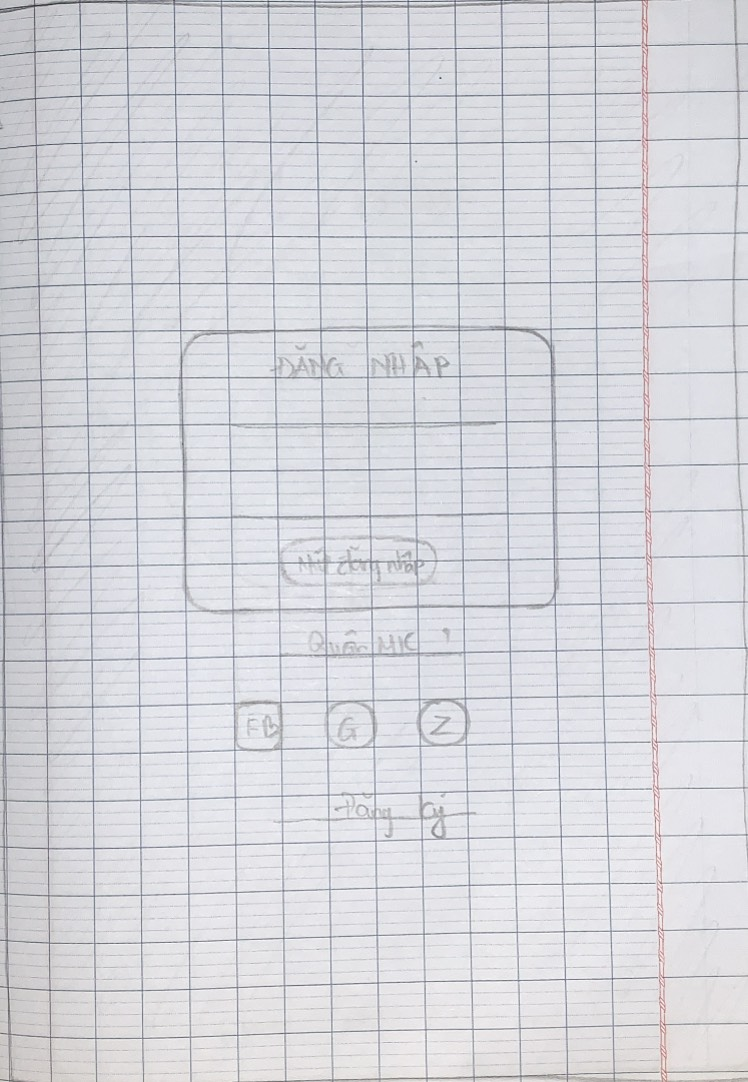 ĐĂNG NHẬP
Nút đăng nhập
Quên MK ?
FB G Z
Đăng ký